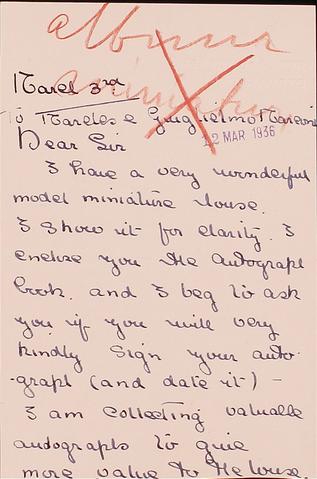 album
miniature
March 3rd
To Marchese Guglielmo Marconi
12 MAR 1936
Dear Sir
I have a very wonderful
model miniature House.
I show it for charity. I
enclose you the autograph
book. and I beg to ask
you if you will very
kindly sign your auto-
-graph (and date it) -
I am collecting valuable
autographs to give
more value to the House.